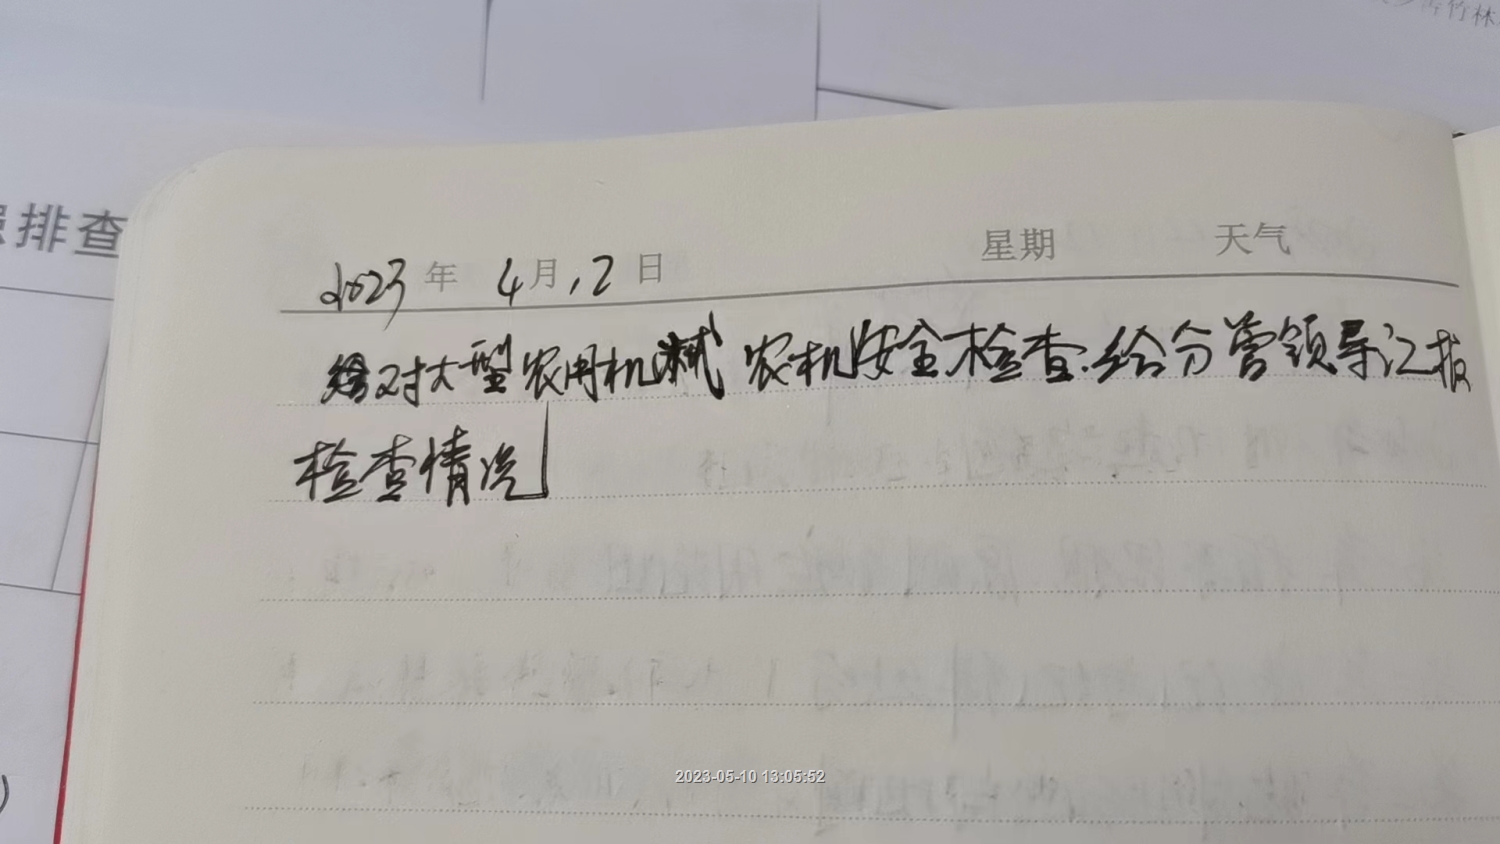 青竹林
排查
星期 天气
2023年 4月12日
对大型农用机械 农机安全检查.给分管领导汇报
检查情况
2023-05-10 13:05:52